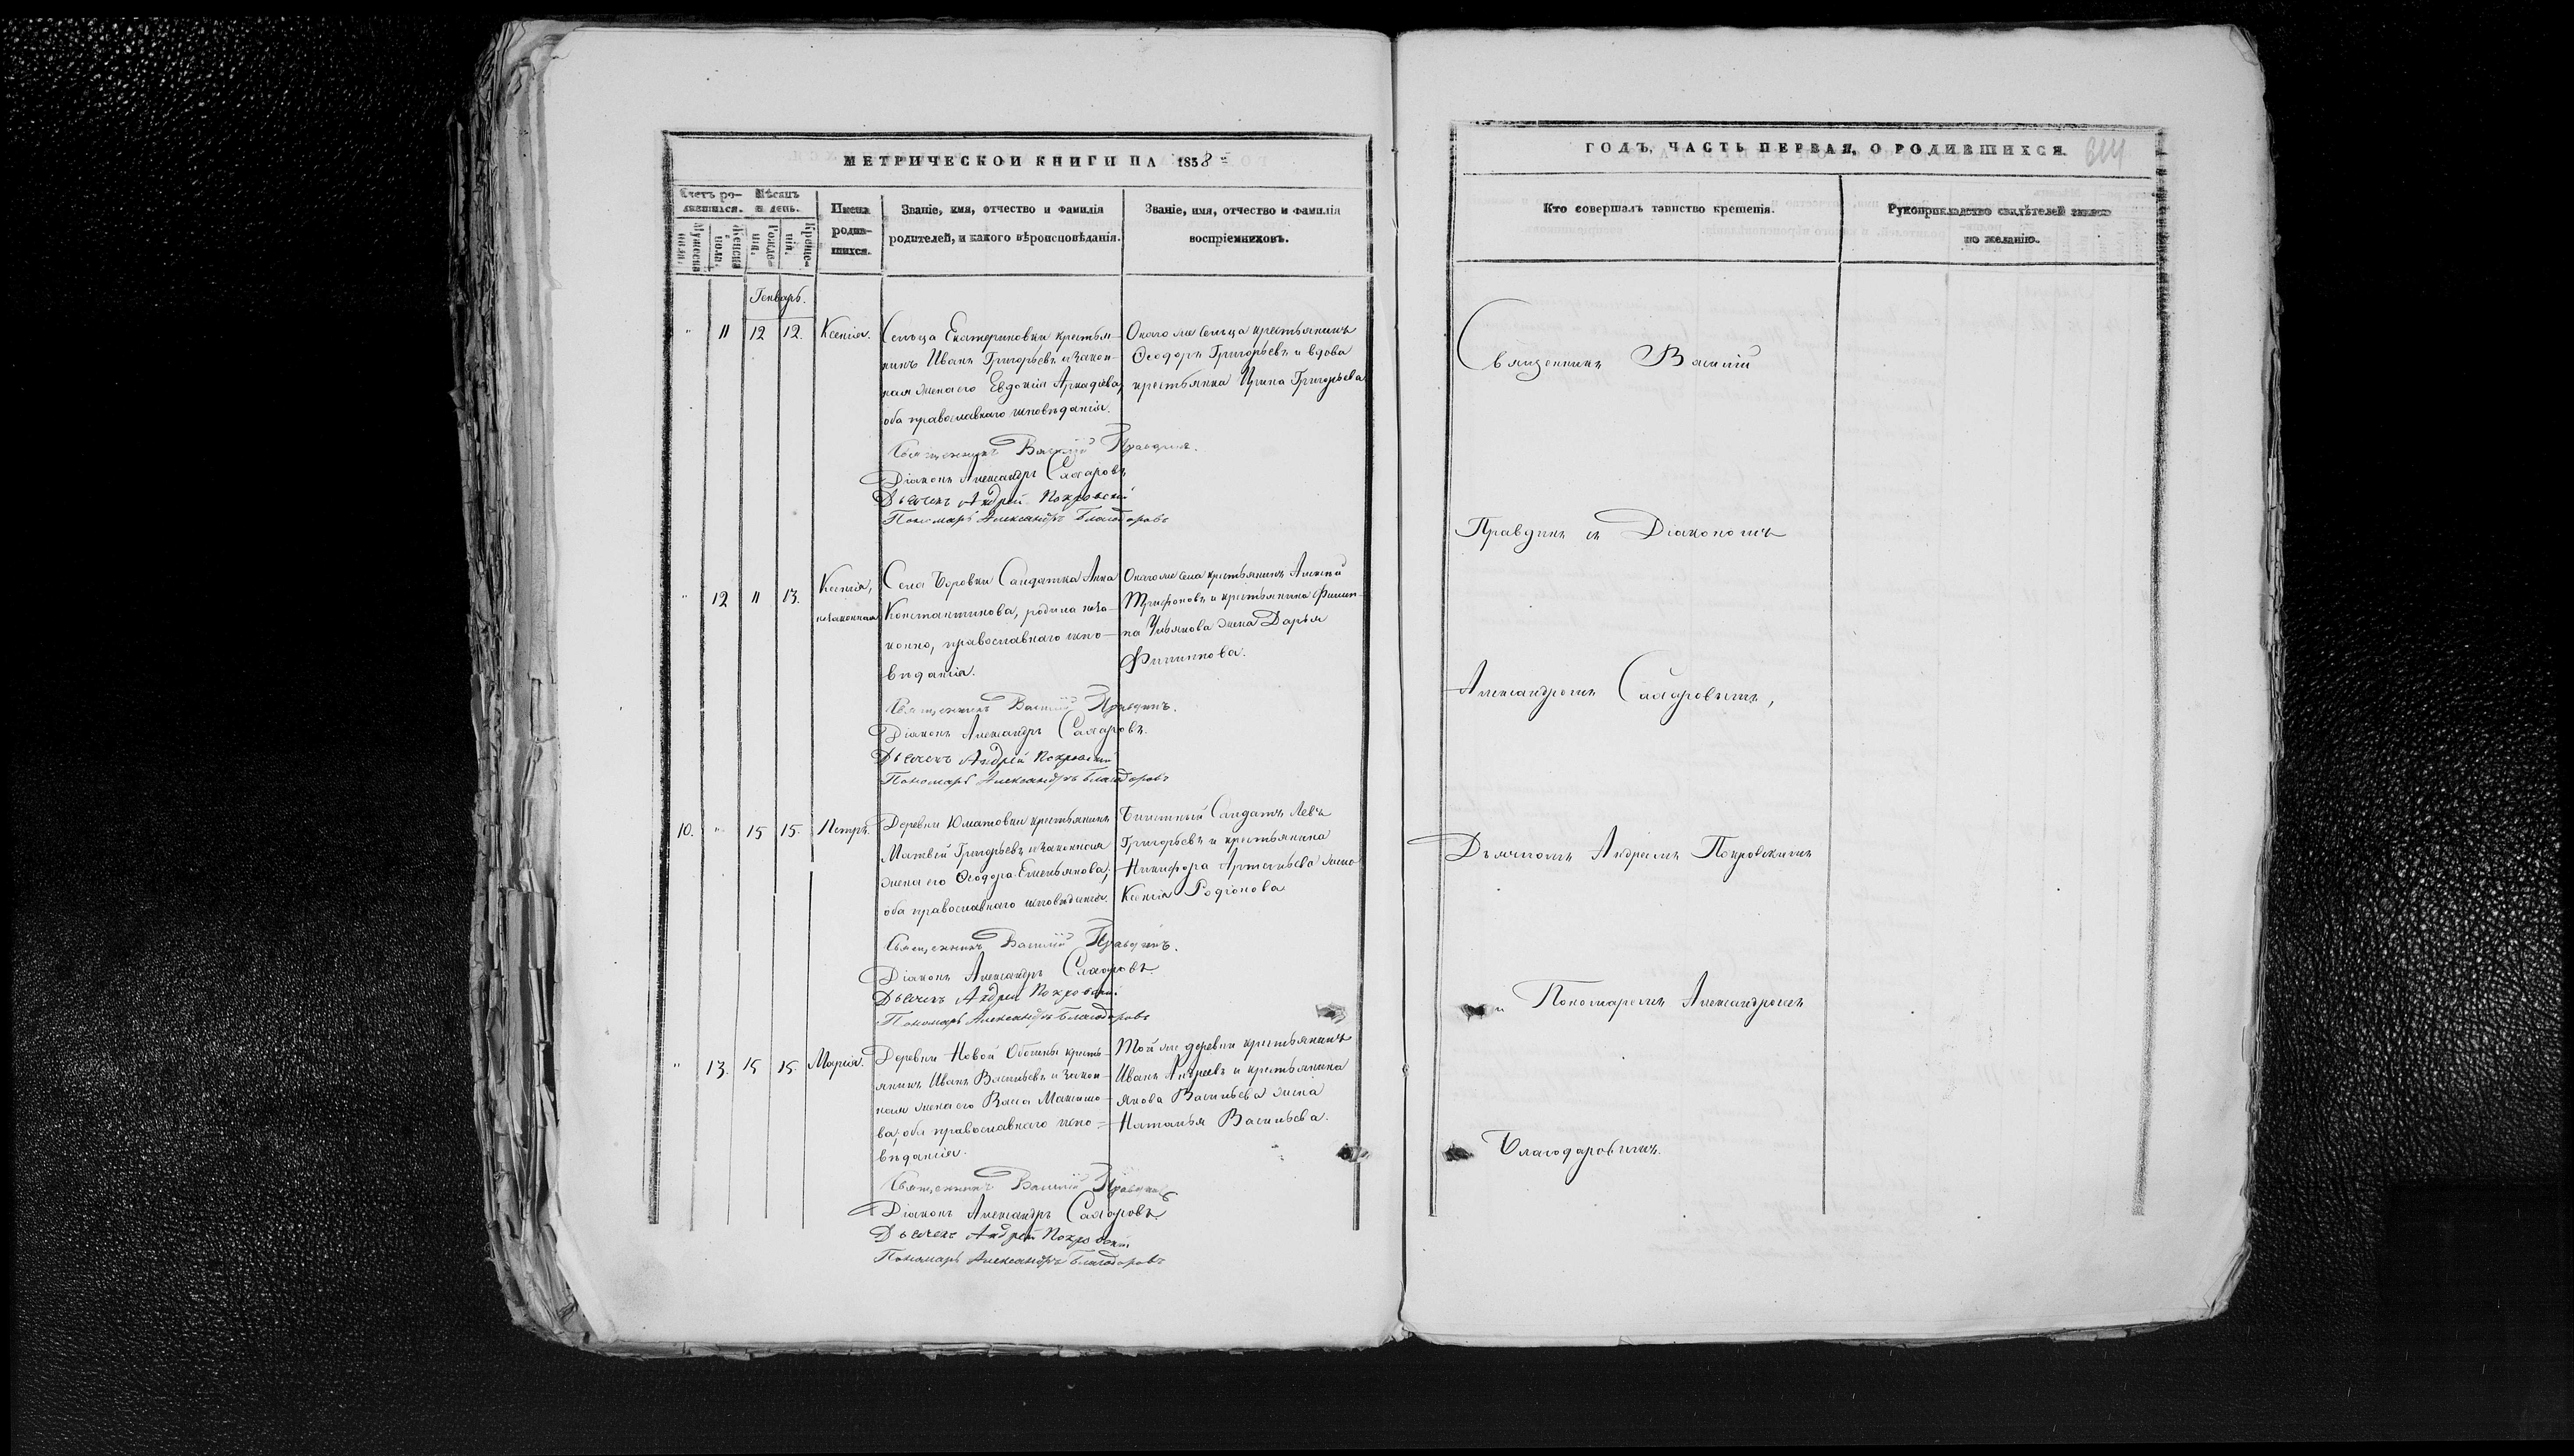 МЕТРИЧЕСКОЙ КНИГИ НА 1858
Счетъ ро-
дившихся.
Мѣсяцъ
и день.
Мужеска
пола.
Женска
пола.
Рожде-
нія.
Креще-
нія.
Имена
родив-
шихся.
Званіе, имя, отчество и фамилія
родителей, и какого вѣроисповѣданія.
Званіе, имя, отчество и фамилія
воспріемниковъ.
Генварь.
" 11 12 12. Ксенія.
Сельца Екатериновки крестья-
нинъ Иванъ Григорьевъ и закон-
ная жена его Евдокія Аркадіева,
оба православнаго исповѣданія.
Онаго же сельца крестьянинъ
Ѳеодоръ Григорьевъ и вдова
крестьянка Ирина Григорьева
Священникъ Василій Правдинъ.
Діаконъ Александръ Сахаровъ
Дьячекъ Андрей Покровскій
Пономарь Александръ Благодаровъ
" 12 11 13. Ксенія,
незаконная
Села Боровки Солдатка Анна
Константинова, родила неза-
конно, православнаго испо-
вѣданія.
Онаго же села крестьянинъ Алексѣй
Трифоновъ и крестьянина Филип-
па Ульянова жена Дарья
Филиппова.
Священникъ Василій Правдинъ.
Діаконъ Александръ Сахаровъ.
Дьячекъ Андрей Покровскій
Пономарь Александръ Благодаровъ
10. " 15 15. Петръ.
Деревни Юматовки крестьянинъ
Матвѣй Григорьевъ и законная
жена его Ѳеодора Емельянова,
оба православнаго исповѣданія.
Солдатъ Левъ
Григорьевъ и крестьянина
Никифора Артемьева жена
Ксенія Родіонова
Священникъ Василій Правдинъ.
Діаконъ Александръ Сахаровъ.
Дьячекъ Андрей Покровскій
Пономарь Александръ Благодаровъ
" 13. 15 15. Марія.
Деревни Новой кресть-
янинъ Иванъ Васильевъ и закон-
ная жена его Васса Максимо-
ва, оба православнаго испо=
вѣданія.
Той же деревни крестьянинъ
Иванъ Андреевъ и крестьянина
Якова Васильева жена
Наталья Васильева.
Священникъ Василій Правдинъ
Діаконъ Александръ Сахаровъ.
Дьячекъ Андрей Покровскій
Пономарь Александръ Благодаровъ
ГОДЪ, ЧАСТЬ ПЕРВАЯ, О РОДИВШИХСЯ.
Кто совершалъ таинство крещенія.
Рукоприкладство свидѣтелей записи
по желанію.
Священникъ Василій
Правдинъ съ Діакономъ
Александромъ Сахаровымъ,
Дьячкомъ Андреемъ Покровскимъ
и Пономаремъ Александромъ
Благодаровымъ.